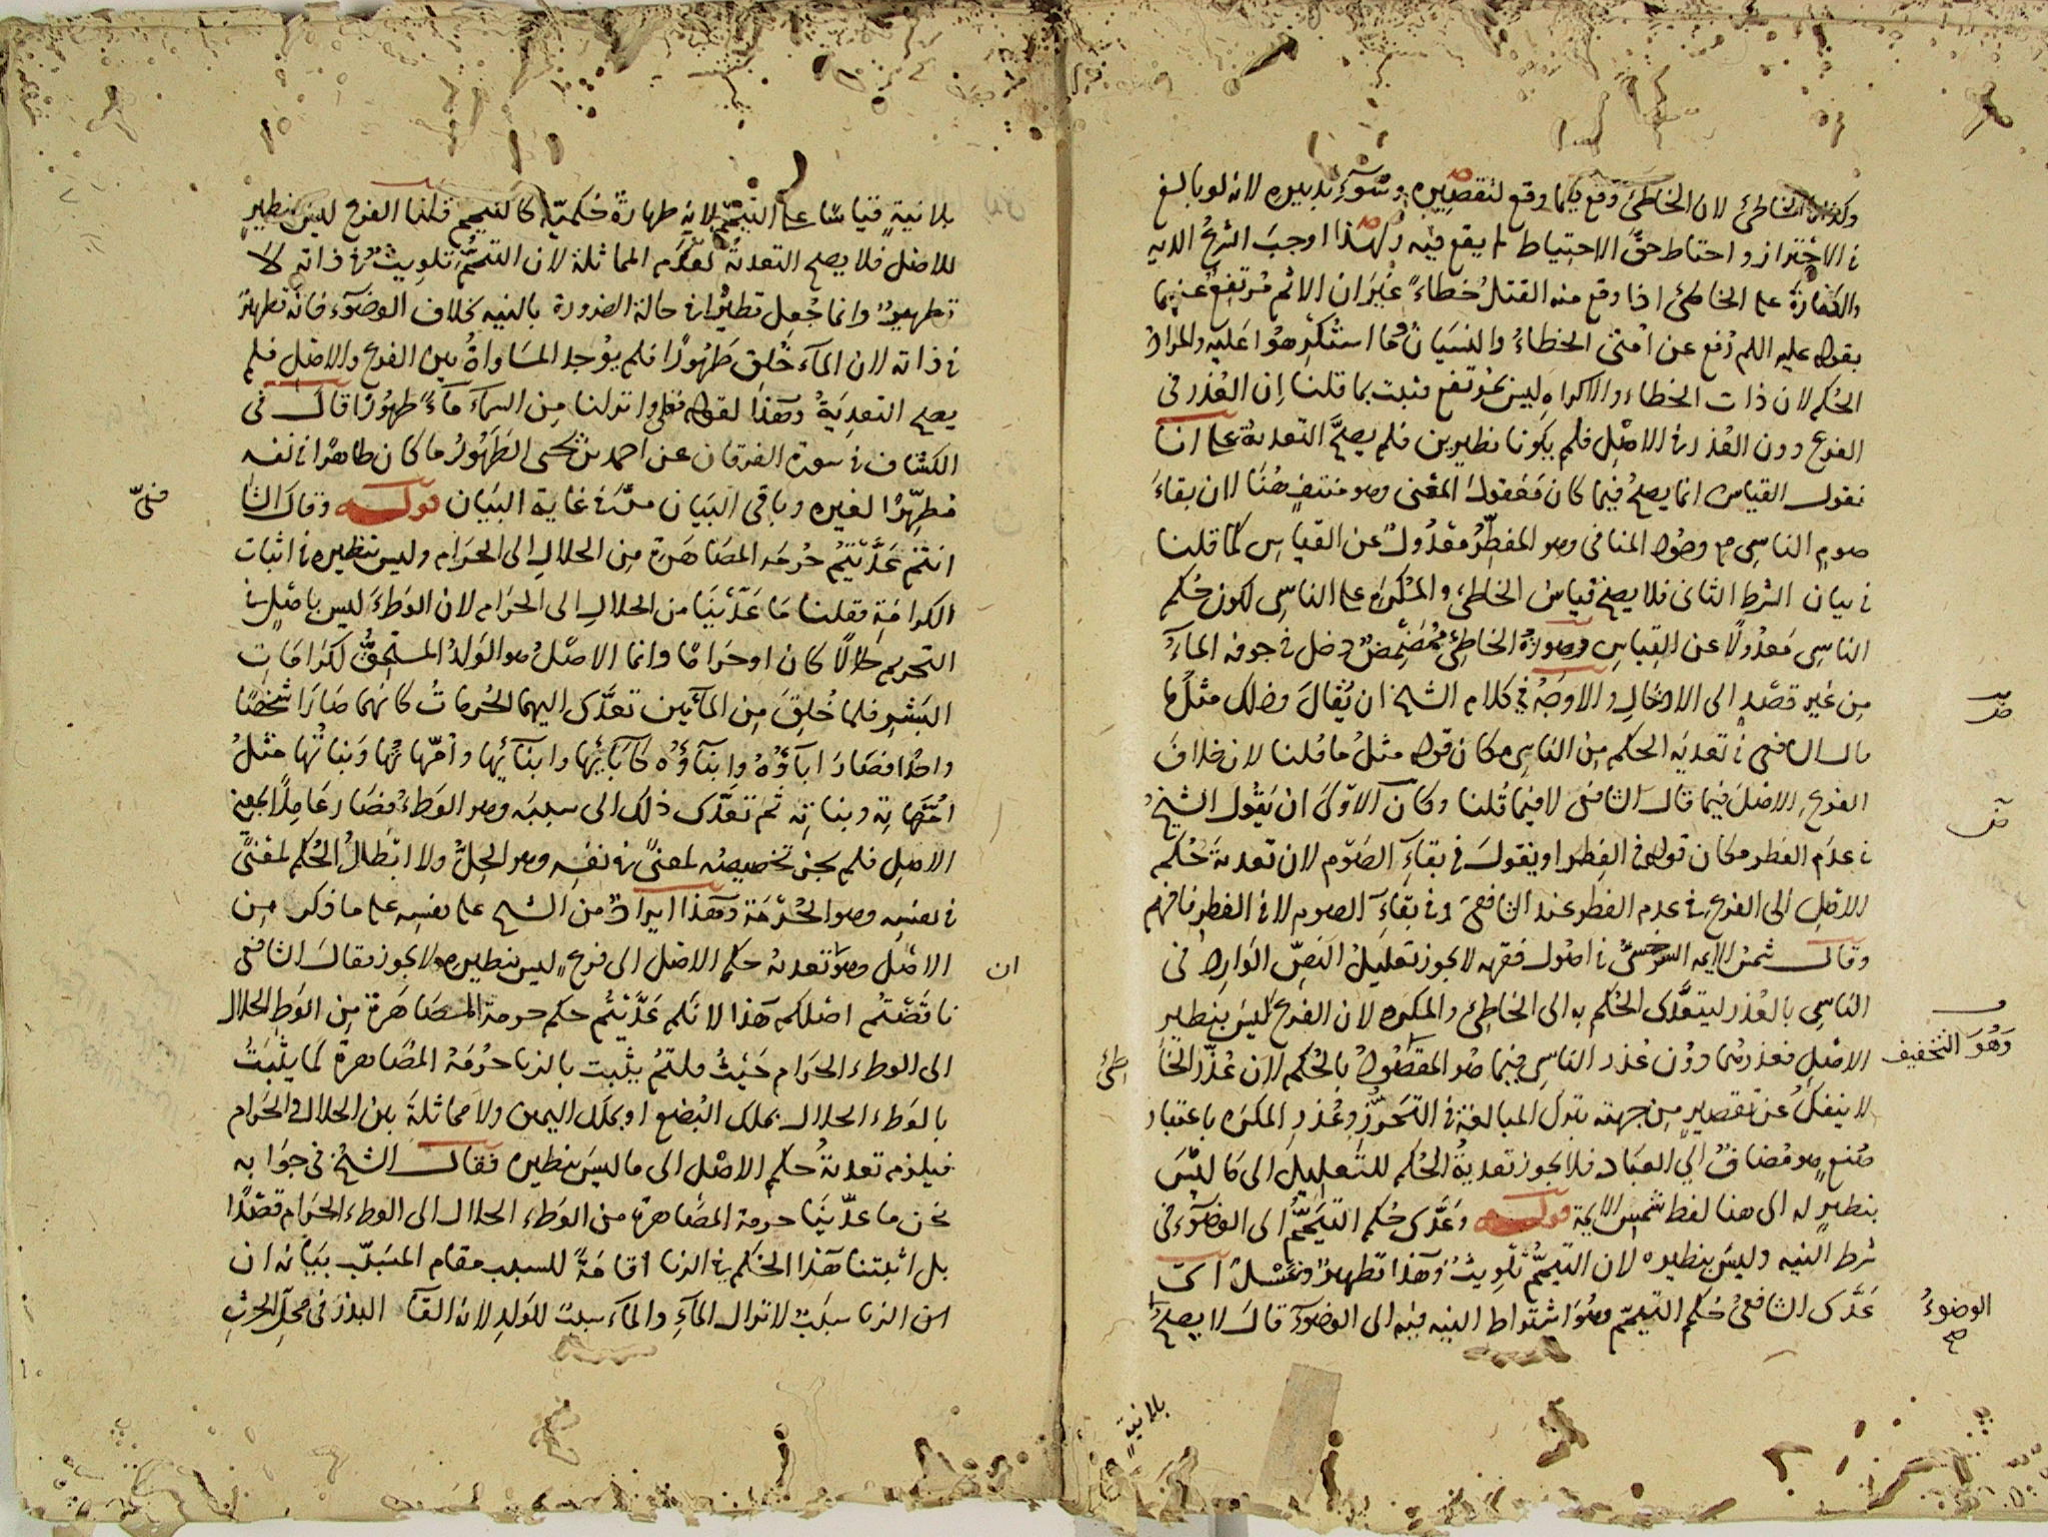 وكذا الخاطئ لان الخاطئ وقع فيما وقع لتقصيره وسوء تدبيره لانه لو بالغ
في الاحتراز واحتاط حق الاحتياط لم يقع فيه ولهذا اوجب الشرع الدية
والكفارة على الخاطئ اذا وقع منه القتل خطاء غير ان الاثم مرتفع عنهما
بقوله عليه السلم رفع عن امتي الخطاء والنسيان وما استكرهوا عليه والمراد
الحكم لان ذات الخطاء والاكراه ليس بمرتفع فثبت بما قلنا ان العذر في
الفرع دون العذر في الاصل فلم يكونا نظيرين فلم يصح التعدية على انا
نقول القياس انما يصح فيما كان معقول المعنى وهو منتف هنا لان بقاء
صوم الناسي مع وجود المنافي وهو المفطر معدول عن القياس كما قلنا
في بيان الشرط الثاني فلا يصح قياس الخاطئ والمكره على الناسي لكون حكم
الناسي معدولا عن القياس وصورة الخاطئ مضمض دخل في جوفه الماء
من غير قصد الى الادخال والاوجه في كلام الشيخ ان يقال وذلك مثل ما
قال الشافعي في تعدية الحكم من الناسي مكان قوله مثل ما قلنا لان خلاف
الفرع الاصل فيما قال الشافعي لا فيما قلنا وكان الاولى ان يقول الشيخ
في عدم الفطر مكان قوله في الفطر او يقول في بقاء الصوم لان تعدية حكم
الاصل الى الفرع في عدم الفطر عند الشافعي وفي بقاء الصوم لا في الفطر فافهم
وقال شمس الايمة السرخسي في اصول فقهه لا يجوز تعليل النص الوارد في
الناسي بالعذر ليتعدى الحكم به الى الخاطئ والمكره لان الفرع ليس بنظير
الاصل فعذرهما دون عذر الناسي فيما هو المقصود بالحكم لان عذر الخا
طئ
وهو التخفيف
لا ينفك عن تقصير من جهته بترك المبالغة في التحرز وعذر المكره باعتبار
صنع هو مضاف الى العباد فلا يجوز تعدية الحكم للتعليل الى ما ليس
بنظير له الى هنا لفظ شمس الايمة قوله وعدى حكم التيمم الى الوضوء في
شرط النيه وليس بنظيره لان التيمم تلويث وهذا تطهير وغسل اي
عدى الشافعي حكم التيمم وهو اشتراط النيه فيه الى الوضوء قال لا يصح
الوضوء
صح
بلا نية
بلا نية قياسا على التيمم لانه طهارة حكمية كالتيمم قلنا الفرع ليس بنظير
للاصل فلا يصح التعدية لعدم المماثلة لان التيمم تلويث في ذاته لا
تطهير وانما جعل تطهيرا في حالة الضرورة بالنيه بخلاف الوضوء فانه تطهير
في ذاته لان الماء خلق طهورا فلم يوجد المساواة بين الفرع والاصل فلم
يصح التعدية وهذا لقوله تعالى وانزلنا من السماء ماء طهورا قال في
الكشاف في سورة الفرقان عن احمد بن يحيى الطهور ما كان طاهرا في نفسه
مطهرا لغيره وباقي البيان مر في غاية البيان قوله وقال الشا
فعي
انتم عديتم حرمة المصاهرة من الحلال الى الحرام وليس بنظيره في اثبات
الكرامة فقلنا ما عدينا من الحلال الى الحرام لان الوطء ليس باصل في
التحريم حلالا كان او حراما وانما الاصل هو الولد المستحق لكرامات
البشر فلما خلق من المائين تعدى اليهما الحرمات كانهما صارا شخصا
واحدا فصار اباؤه وابناؤه كابائها وابنائها وامهاتها وبناتها مثل
امهاته وبناته ثم تعدى ذلك الى سببه وهو الوطء فصار عاملا بمعنى
الاصل فلم يجز تخصيصه لمعنى في نفسه وهو الحل ولا ابطال الحكم لمعنى
في نفسه وهو الحرمة وهذا ايراد من الشيخ على نفسه على ما ذكر من
ان
الاصل وهو تعدية حكم الاصل الى فرع ليس بنظيره لا يجوز فقال الشافعي
ناقضتم اصلكم هذا لانكم عديتم حكم حرمة المصاهرة من الوطء الحلال
الى الوطء الحرام حيث قلتم يثبت بالزنا حرمة المصاهرة كما يثبت
بالوطء الحلال بملك البضع او بملك اليمين ولا مماثلة بين الحلال والحرام
فيلزم تعدية حكم الاصل الى ما ليس بنظيره فقال الشيخ في جوابه
نحن ما عدينا حرمة المصاهرة من الوطء الحلال الى الوطء الحرام قصدا
بل اثبتنا هذا الحكم في الزنا اقامة للسبب مقام المسبب بيانه ان
الزنا سبب لانزال الماء والماء سبب للولد لانه القاء البذر في محل الحرث